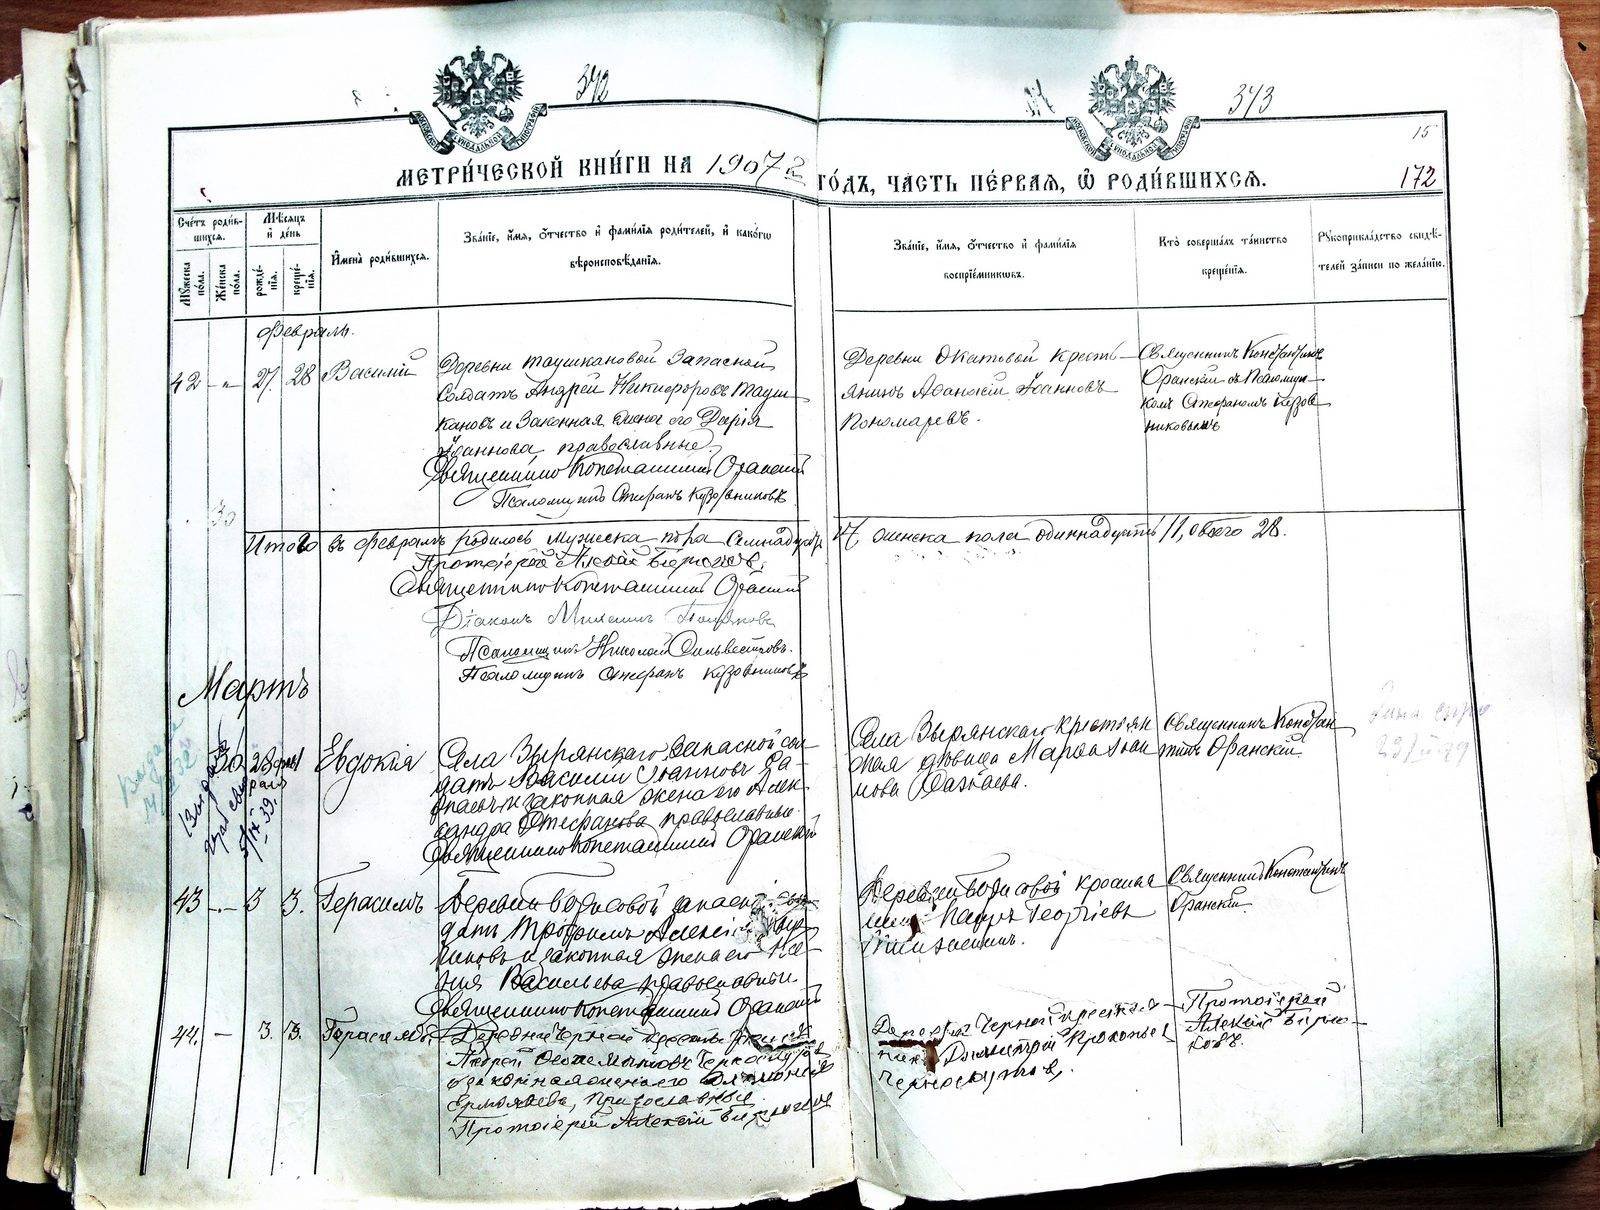 372
373
15
МЕТРИ́ЧЕСКОЙ КНИ́ГИ НА 1907 ГО́ДЪ, ЧАСТЬ ПЕ́РВАЯ, Ѡ҆ РОДИ́ВШИХСѦ.
172
Сче́тъ роди́в-
шихсѧ.
Мѣ́сѧцъ
и҆ де́нь
Мꙋ́жеска по́ла.
Же́нска по́ла.
рожде́-
нїѧ.
креще́-
нїѧ.
И҆мена̀ роди́вшихсѧ.
Зва́нїе, и҆́мѧ, ѻ҆́тчество и҆ фами́лїѧ роди́телей, и҆ како́гѡ
вѣроисповѣ́данїѧ.
Зва́нїе, и҆́мѧ, ѻ҆́тчество и҆ фами́лїѧ
воспрїе́мникѡвъ.
Кто̀ соверша́лъ та́инство
креще́нїѧ.
Рꙋкоприкла́дство свидѣ́-
телей за́писи по жела́нїю.
Февраль.
42 - „ - 27. 28 Василій
Деревни Таушкановой Запасной
Солдатъ Андрей Никифоровъ Тауш-
кановъ и Законная жена его Дарія
Іоаннова, православные.
Священникъ Константинъ Оранскій
Псаломщикъ Стефанъ Кузовниковъ
Деревни Окатовой кресть-
янинъ Аѳанасій Іоанновъ
Пономаревъ.
Священникъ Константинъ
Оранскій съ Псаломщи-
комъ Стефаномъ Кузов-
никовымъ
30
Итого въ февралѣ родилось мужеска пола Семнадцать 17 женска пола одиннадцать 11, обоего 28.
Протоіерей Алексій Бирюковъ.
Священникъ Константинъ Оранскій
Діаконъ Михаилъ
Псаломщикъ Николай Сильвестровъ.
Псаломщикъ Стефанъ Кузовниковъ
Мартъ
30 28 фев- 1
раля
Евдокія
Села Зырянскаго Запасной сол-
датъ Василій Іоанновъ
и законная жена его Алек-
сандра Стефанова православные
Священникъ Константинъ Оранскій
Села Зырянскаго крестьян-
ская дѣвица Марѳа Іоан-
нова
Священникъ Констан-
тинъ Оранскій.
5/IX 39.
43 - „ - 3 3. Герасимъ
Деревни Борисовой запасный сол-
датъ Трофимъ Алексі
и законная жена его
Васильева православные.
Священникъ Константинъ Оранскій
Деревни Борисовой крестья-
нинъ Георгіевъ
Священникъ Константинъ
Оранскій.
44. - 3. 3. Герасимъ.
Деревни Черной
Андрей
и законная жена его
Ермолаева, православные.
Протоіерей Алексій Бирюковъ
Деревни Черной крестья-
нинъ Димитрій Прокопьев
Черноскутов.
Протоіерей
Алексій Бирю-
ковъ.